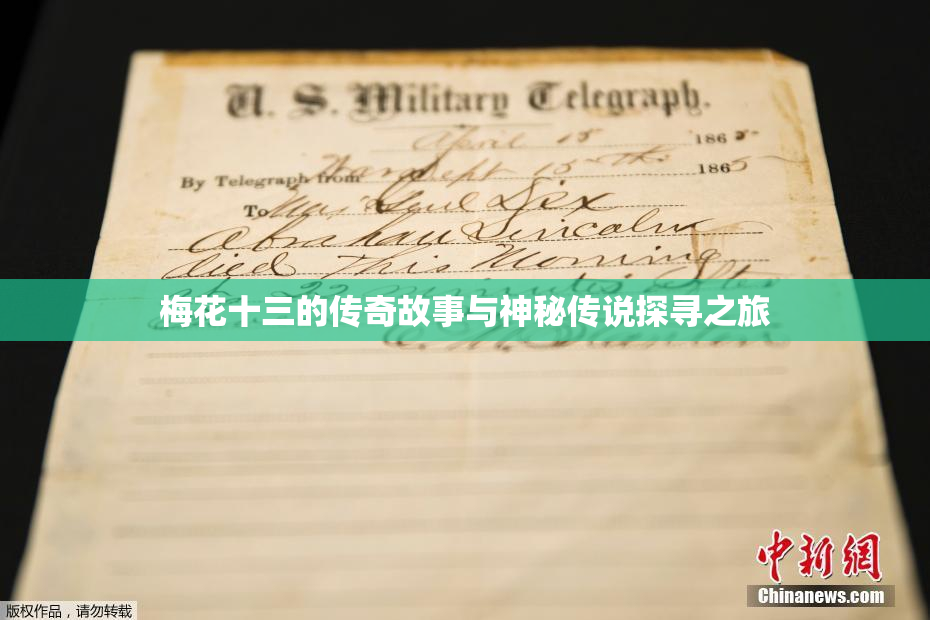 U. S. Military Telegraph.
April 15 1865
By Telegraph from War Dept 15th 1865
To Maj Genl Dix
Abraham Lincoln
died This Morning
at 22 minutes after
梅花十三的传奇故事与神秘传说探寻之旅
中新网
Chinanews.com
版权作品，请勿转载